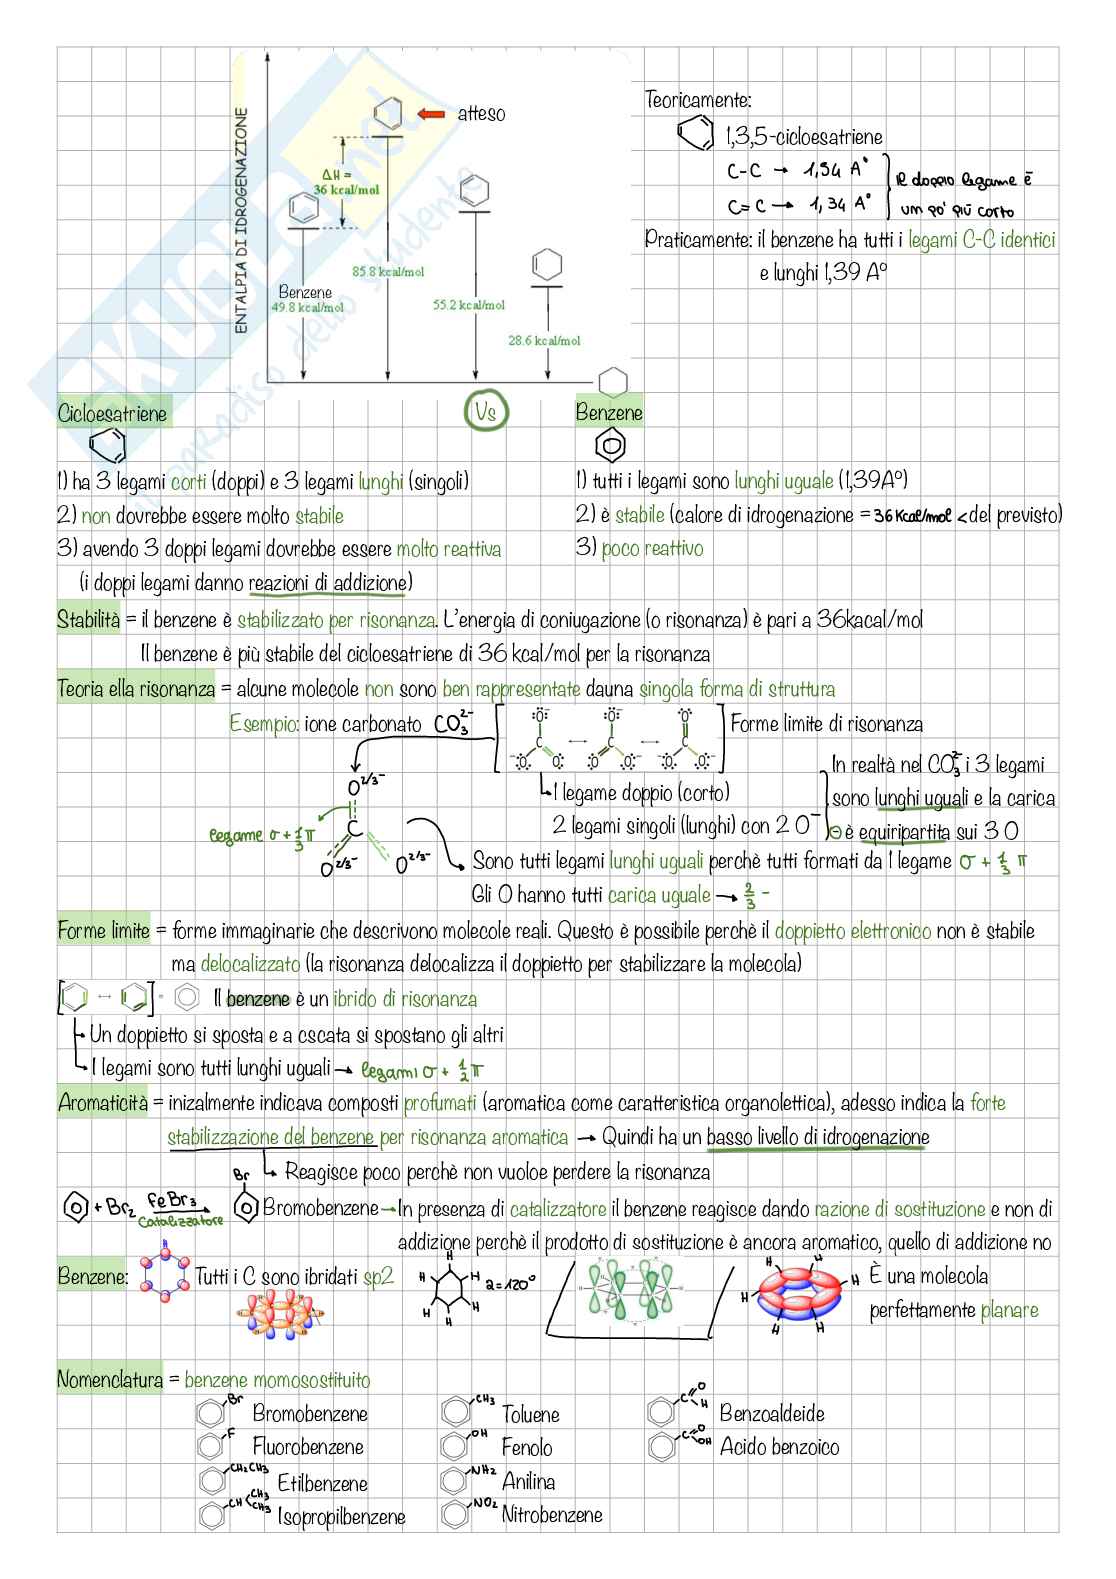 ENTALPIA DI IDROGENAZIONE
atteso
ΔH =
36 kcal/mol
85.8 kcal/mol
Benzene
49.8 kcal/mol
55.2 kcal/mol
28.6 kcal/mol
Teoricamente:
1,3,5-cicloesatriene
C-C → 1,54 A°
C=C → 1,34 A°
il doppio legame è
un po' più corto
Praticamente: il benzene ha tutti i legami C-C identici
e lunghi 1,39 A°
Cicloesatriene
Vs
Benzene
1) ha 3 legami corti (doppi) e 3 legami lunghi (singoli)
2) non dovrebbe essere molto stabile
3) avendo 3 doppi legami dovrebbe essere molto reattiva
(i doppi legami danno reazioni di addizione)
1) tutti i legami sono lunghi uguale (1,39A°)
2) è stabile (calore di idrogenazione = 36 Kcal/mol < del previsto)
3) poco reattivo
Stabilità = il benzene è stabilizzato per risonanza. L'energia di coniugazione (o risonanza) è pari a 36kacal/mol
Il benzene è più stabile del cicloesatriene di 36 kcal/mol per la risonanza
Teoria ella risonanza = alcune molecole non sono ben rappresentate dauna singola forma di struttura
Esempio: ione carbonato CO₃²⁻
Forme limite di risonanza
1 legame doppio (corto)
2 legami singoli (lunghi) con 2 O⁻
In realtà nel CO₃²⁻ i 3 legami
sono lunghi uguali e la carica
⊖ è equiripartita sui 3 O
O²/³⁻
legame σ + 1/3 π
C
O²/³⁻ O²/³⁻
Sono tutti legami lunghi uguali perchè tutti formati da 1 legame σ + 1/3 π
Gli O hanno tutti carica uguale → 2/3 -
Forme limite = forme immaginarie che descrivono molecole reali. Questo è possibile perchè il doppietto elettronico non è stabile
ma delocalizzato (la risonanza delocalizza il doppietto per stabilizzare la molecola)
Il benzene è un ibrido di risonanza
Un doppietto si sposta e a cscata si spostano gli altri
I legami sono tutti lunghi uguali → legami σ + 1/2 π
Aromaticità = inizalmente indicava composti profumati (aromatica come caratteristica organolettica), adesso indica la forte
stabilizzazione del benzene per risonanza aromatica → Quindi ha un basso livello di idrogenazione
Reagisce poco perchè non vuoloe perdere la risonanza
+ Br₂ FeBr₃ Catalizzatore
Br
Bromobenzene → In presenza di catalizzatore il benzene reagisce dando razione di sostituzione e non di
addizione perchè il prodotto di sostituzione è ancora aromatico, quello di addizione no
Benzene:
H
Tutti i C sono ibridati sp2
H H H H H H
2=120°
H H H H H H
È una molecola
perfettamente planare
Nomenclatura = benzene momosostituito
Br Bromobenzene
CH₃ Toluene
C O H Benzoaldeide
F Fluorobenzene
OH Fenolo
C O OH Acido benzoico
CH₂CH₃ Etilbenzene
NH₂ Anilina
CH CH₃ CH₃ Isopropilbenzene
NO₂ Nitrobenzene